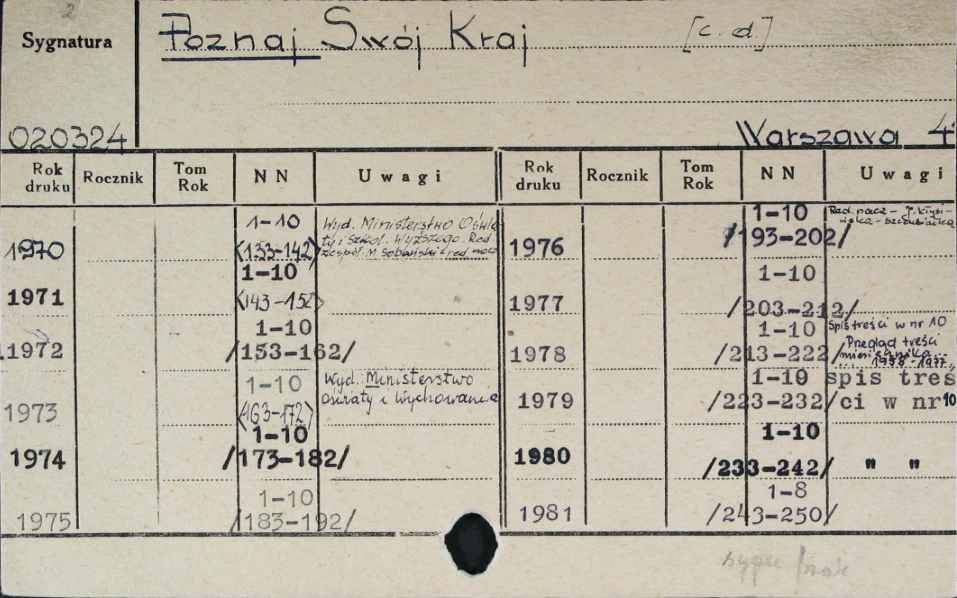 2
Sygnatura
Poznaj Swój Kraj [c. d.]
020324
Warszawa 4°
Rok druku Rocznik Tom Rok NN Uwagi
1970 1-10 <133-142> Wyd. Ministerstwo Oświa
ty i Szkol. Wyższego. Red
zespół. M. Sobański (red. nacz
1971 1-10 <143-152>
1972 1-10 /153-162/
1973 1-10 <163-172> Wyd. Ministerstwo
Oświaty i Wychowania
1974 1-10 /173-182/
1975 1-10 /183-192/
Rok druku Rocznik Tom Rok NN Uwagi
1976 1-10 /193-202/ Red. nacz -
1977 1-10 /203-212/
1978 1-10 /213-222/ Spis treści w nr 10
Przegląd treści
1979 1-10 /223-232/ spis treś
ci w nr 10
1980 1-10 /233-242/ " "
1981 1-8 /243-250/